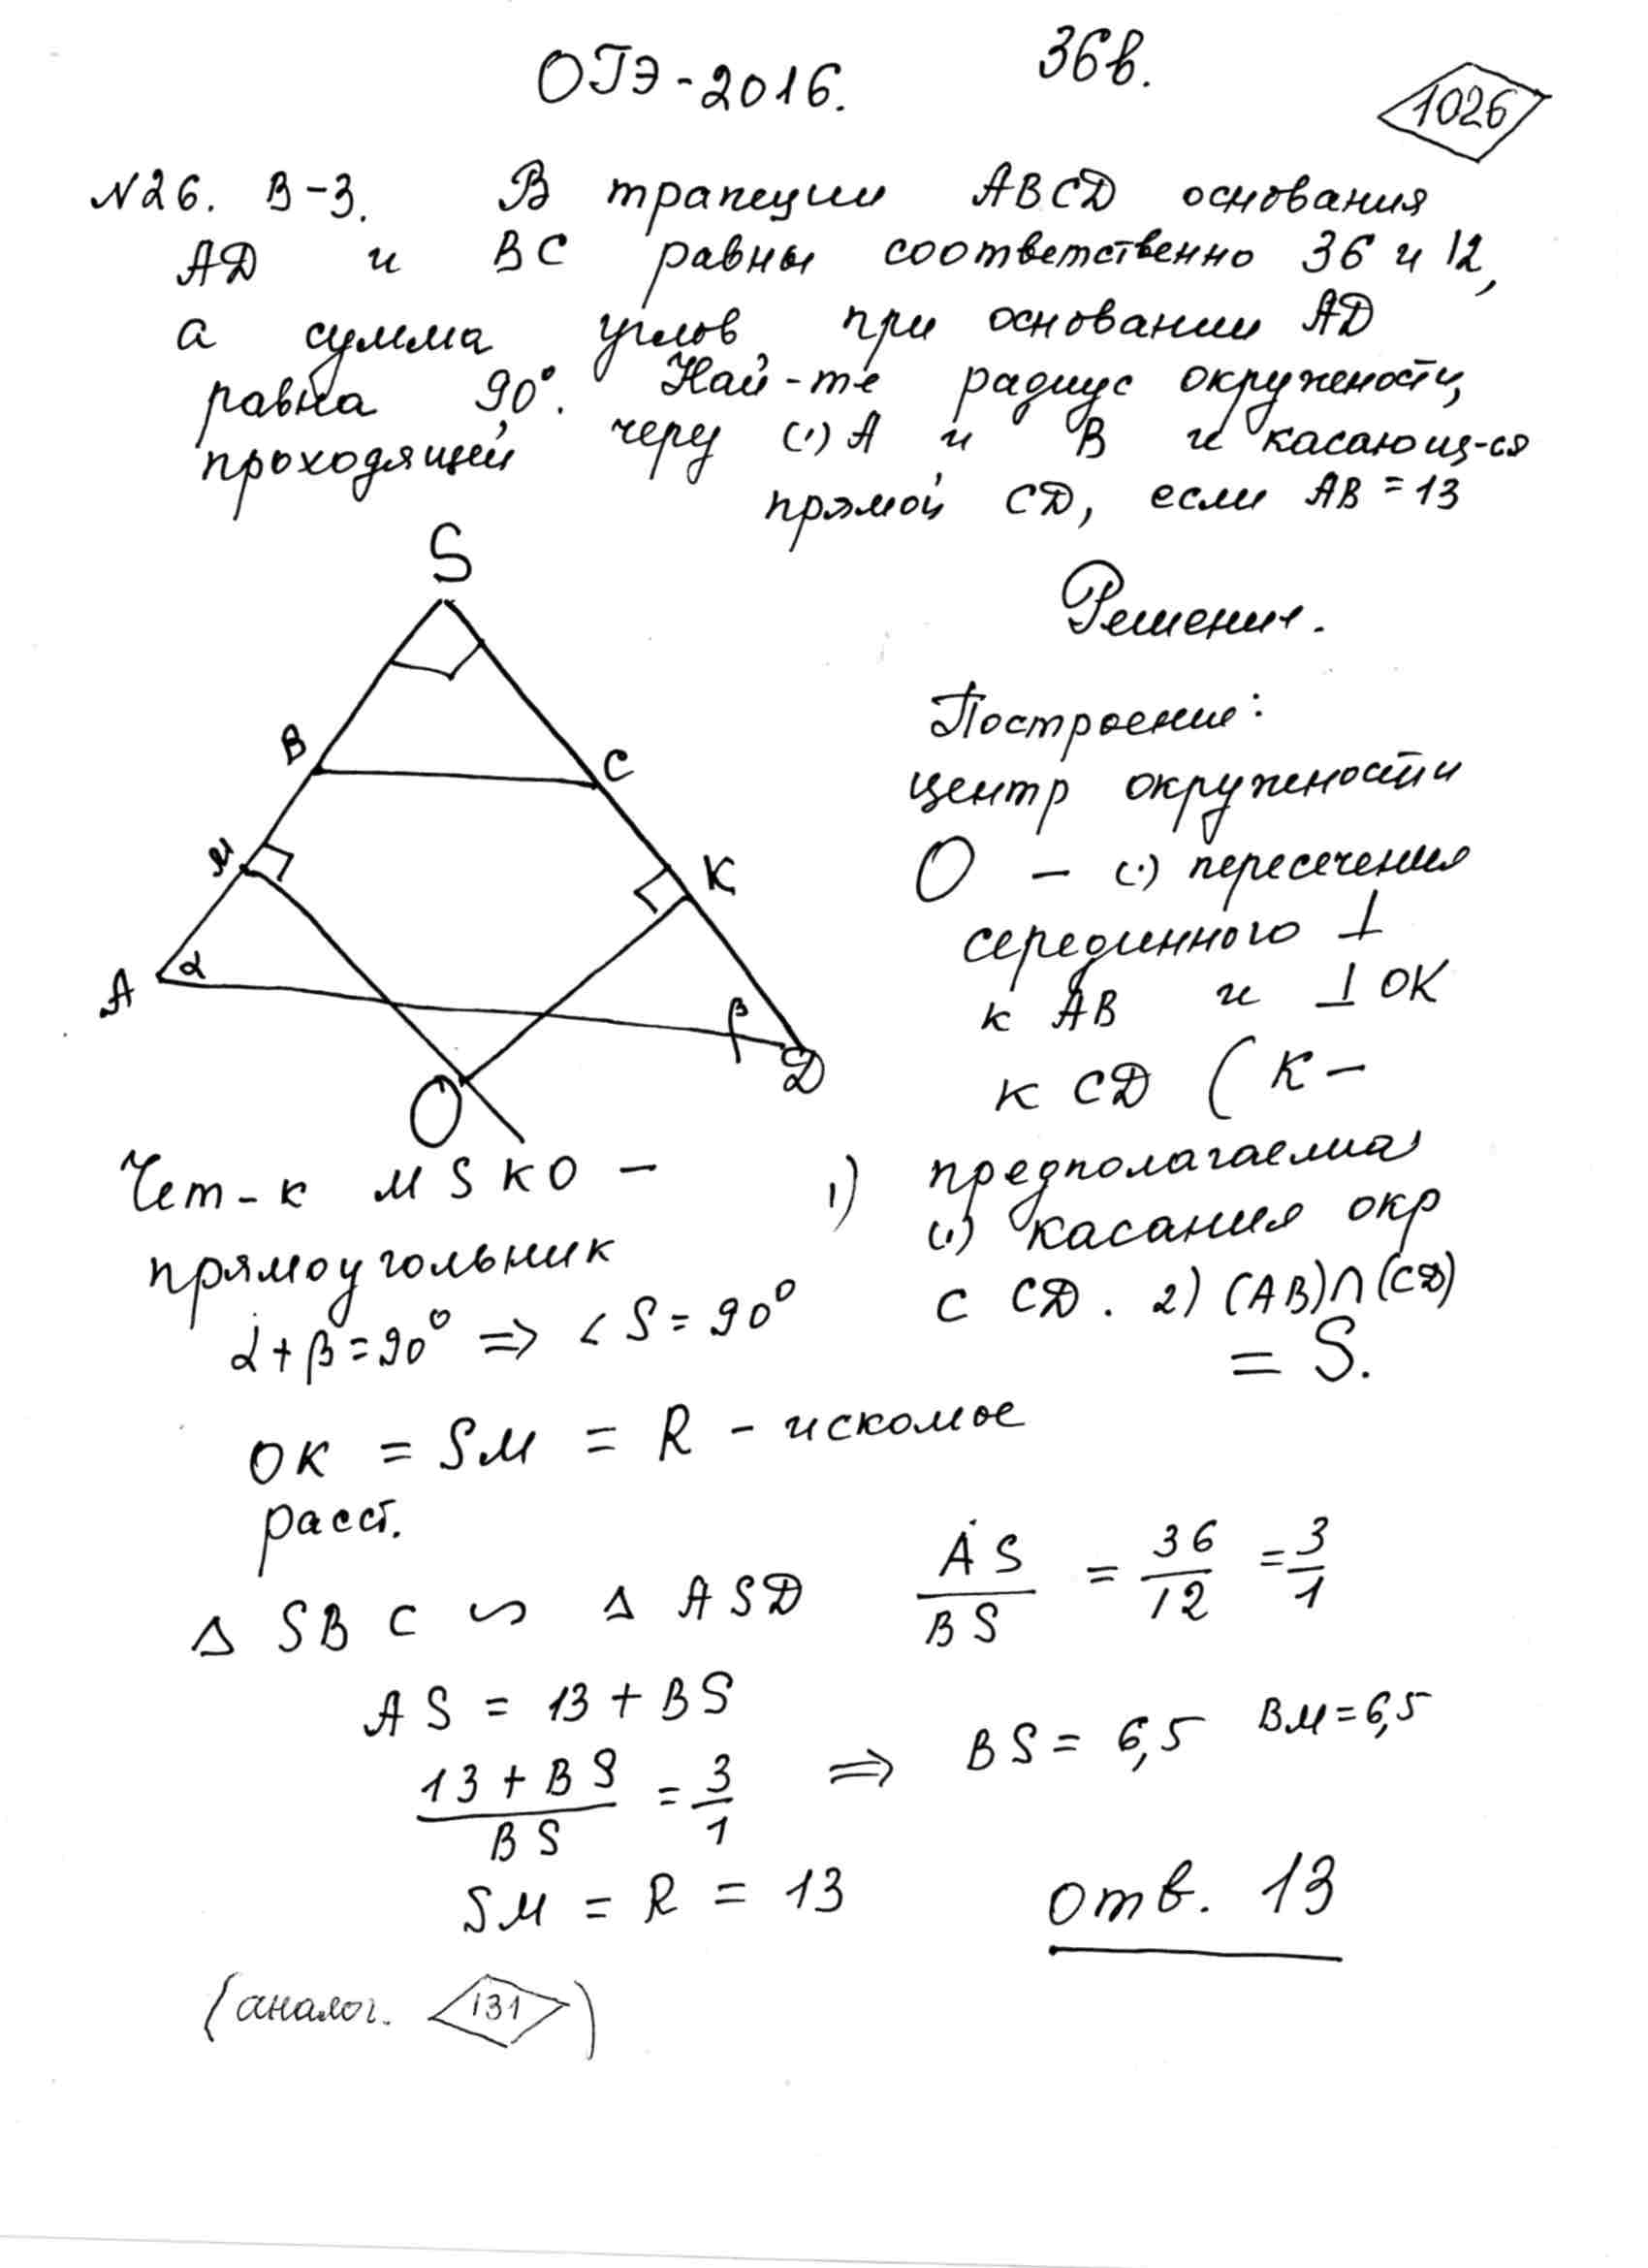 ОГЭ-2016. 36в.
1026
N26. В-3. В трапеции ABCD основания
AD и BC равны соответственно 36 и 12,
а сумма углов при основании AD
равна 90°. Най-те радиус окружности,
проходящей через (·) A и B и касающ-ся
прямой CD, если AB = 13
S
B
C
M
K
A
α
β
D
O
Решение.
Построение:
центр окружности
O – (·) пересечения
серединного ⊥
к AB и ⊥ OK
к CD ( K –
1) предполагаемая
(·) касания окр
с CD. 2) (AB)∩(CD)
= S.
Чет-к MSKO –
прямоугольник
α+β=90° ⇒ ∠S=90°
OK = SM = R – искомое
расст.
△ SBC ∽ △ ASD AS/BS = 36/12 = 3/1
AS = 13 + BS
(13 + BS)/BS = 3/1 ⇒ BS = 6,5 BM = 6,5
SM = R = 13 отв. 13
(аналог. 131)